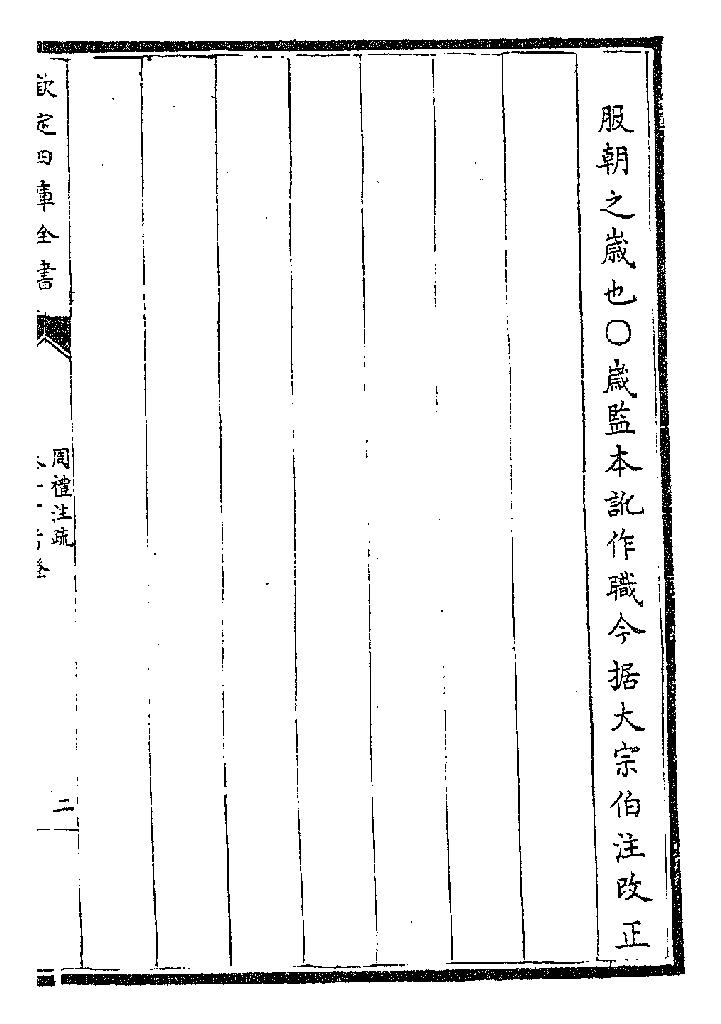 服朝之歲也○歲監本訛作職今据大宗伯注改正
欽定四庫全書
周禮注疏
二